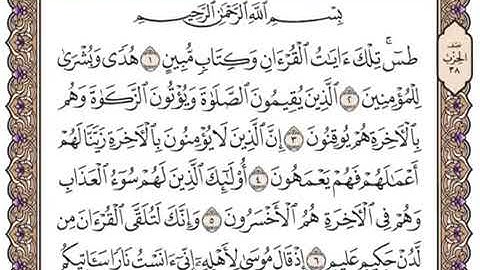 بِسْمِ ٱللَّهِ ٱلرَّحْمَٰنِ ٱلرَّحِيمِ
طسٓۚ تِلْكَ ءَايَٰتُ ٱلْقُرْءَانِ وَكِتَابٖ مُّبِينٍ ١ هُدٗى وَبُشْرَىٰ
لِلْمُؤْمِنِينَ ٢ ٱلَّذِينَ يُقِيمُونَ ٱلصَّلَوٰةَ وَيُؤْتُونَ ٱلزَّكَوٰةَ وَهُم
بِٱلْأٓخِرَةِ هُمْ يُوقِنُونَ ٣ إِنَّ ٱلَّذِينَ لَا يُؤْمِنُونَ بِٱلْأٓخِرَةِ زَيَّنَّا لَهُمْ
أَعْمَٰلَهُمْ فَهُمْ يَعْمَهُونَ ٤ أُوْلَٰٓئِكَ ٱلَّذِينَ لَهُمْ سُوٓءُ ٱلْعَذَابِ
وَهُمْ فِي ٱلْأٓخِرَةِ هُمُ ٱلْأَخْسَرُونَ ٥ وَإِنَّكَ لَتُلَقَّى ٱلْقُرْءَانَ مِن
لَّدُنْ حَكِيمٍ عَلِيمٍ ٦ إِذْ قَالَ مُوسَىٰ لِأَهْلِهِۦٓ إِنِّيٓ ءَانَسْتُ نَارٗا سَـَٔاتِيكُم
نصف
الحزب
٣٨